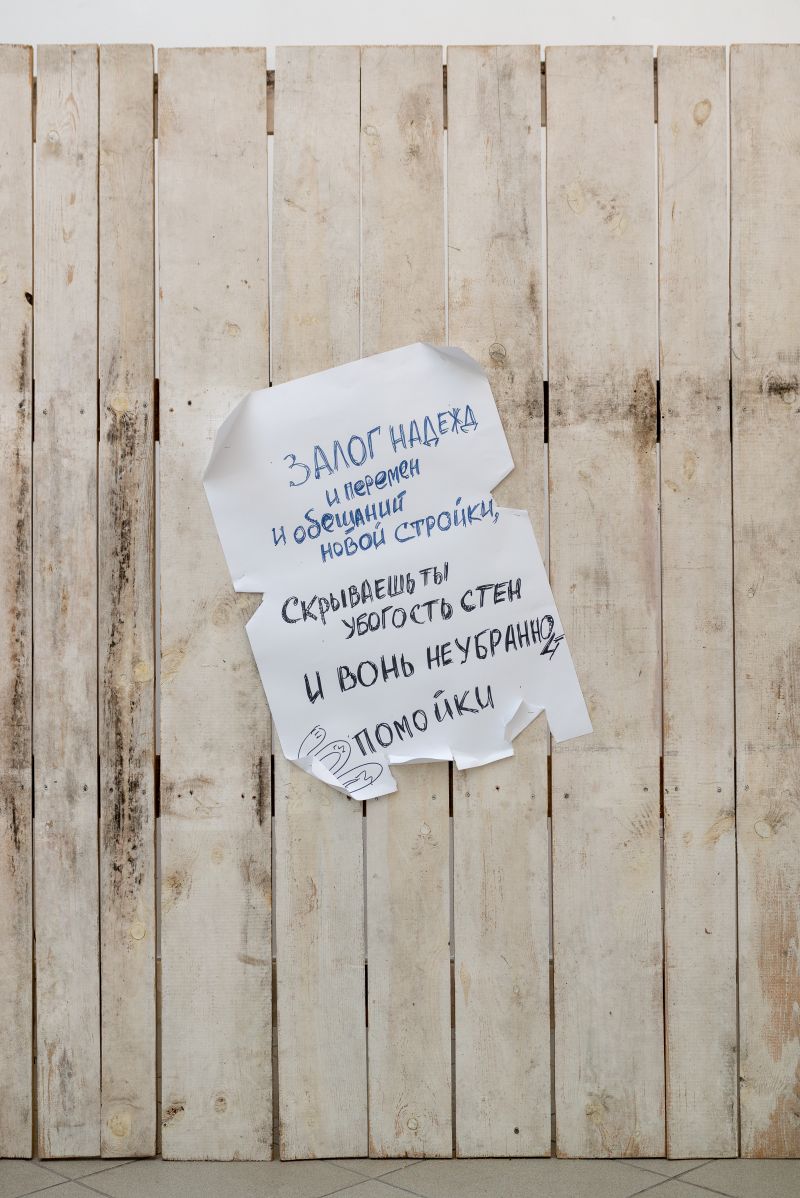 ЗАЛОГ НАДЕЖД
И ПЕРЕМЕН
И ОБЕЩАНИЙ
НОВОЙ СТРОЙКИ,
СКРЫВАЕШЬ ТЫ
УБОГОСТЬ СТЕН
И ВОНЬ НЕУБРАННОЙ
ПОМОЙКИ